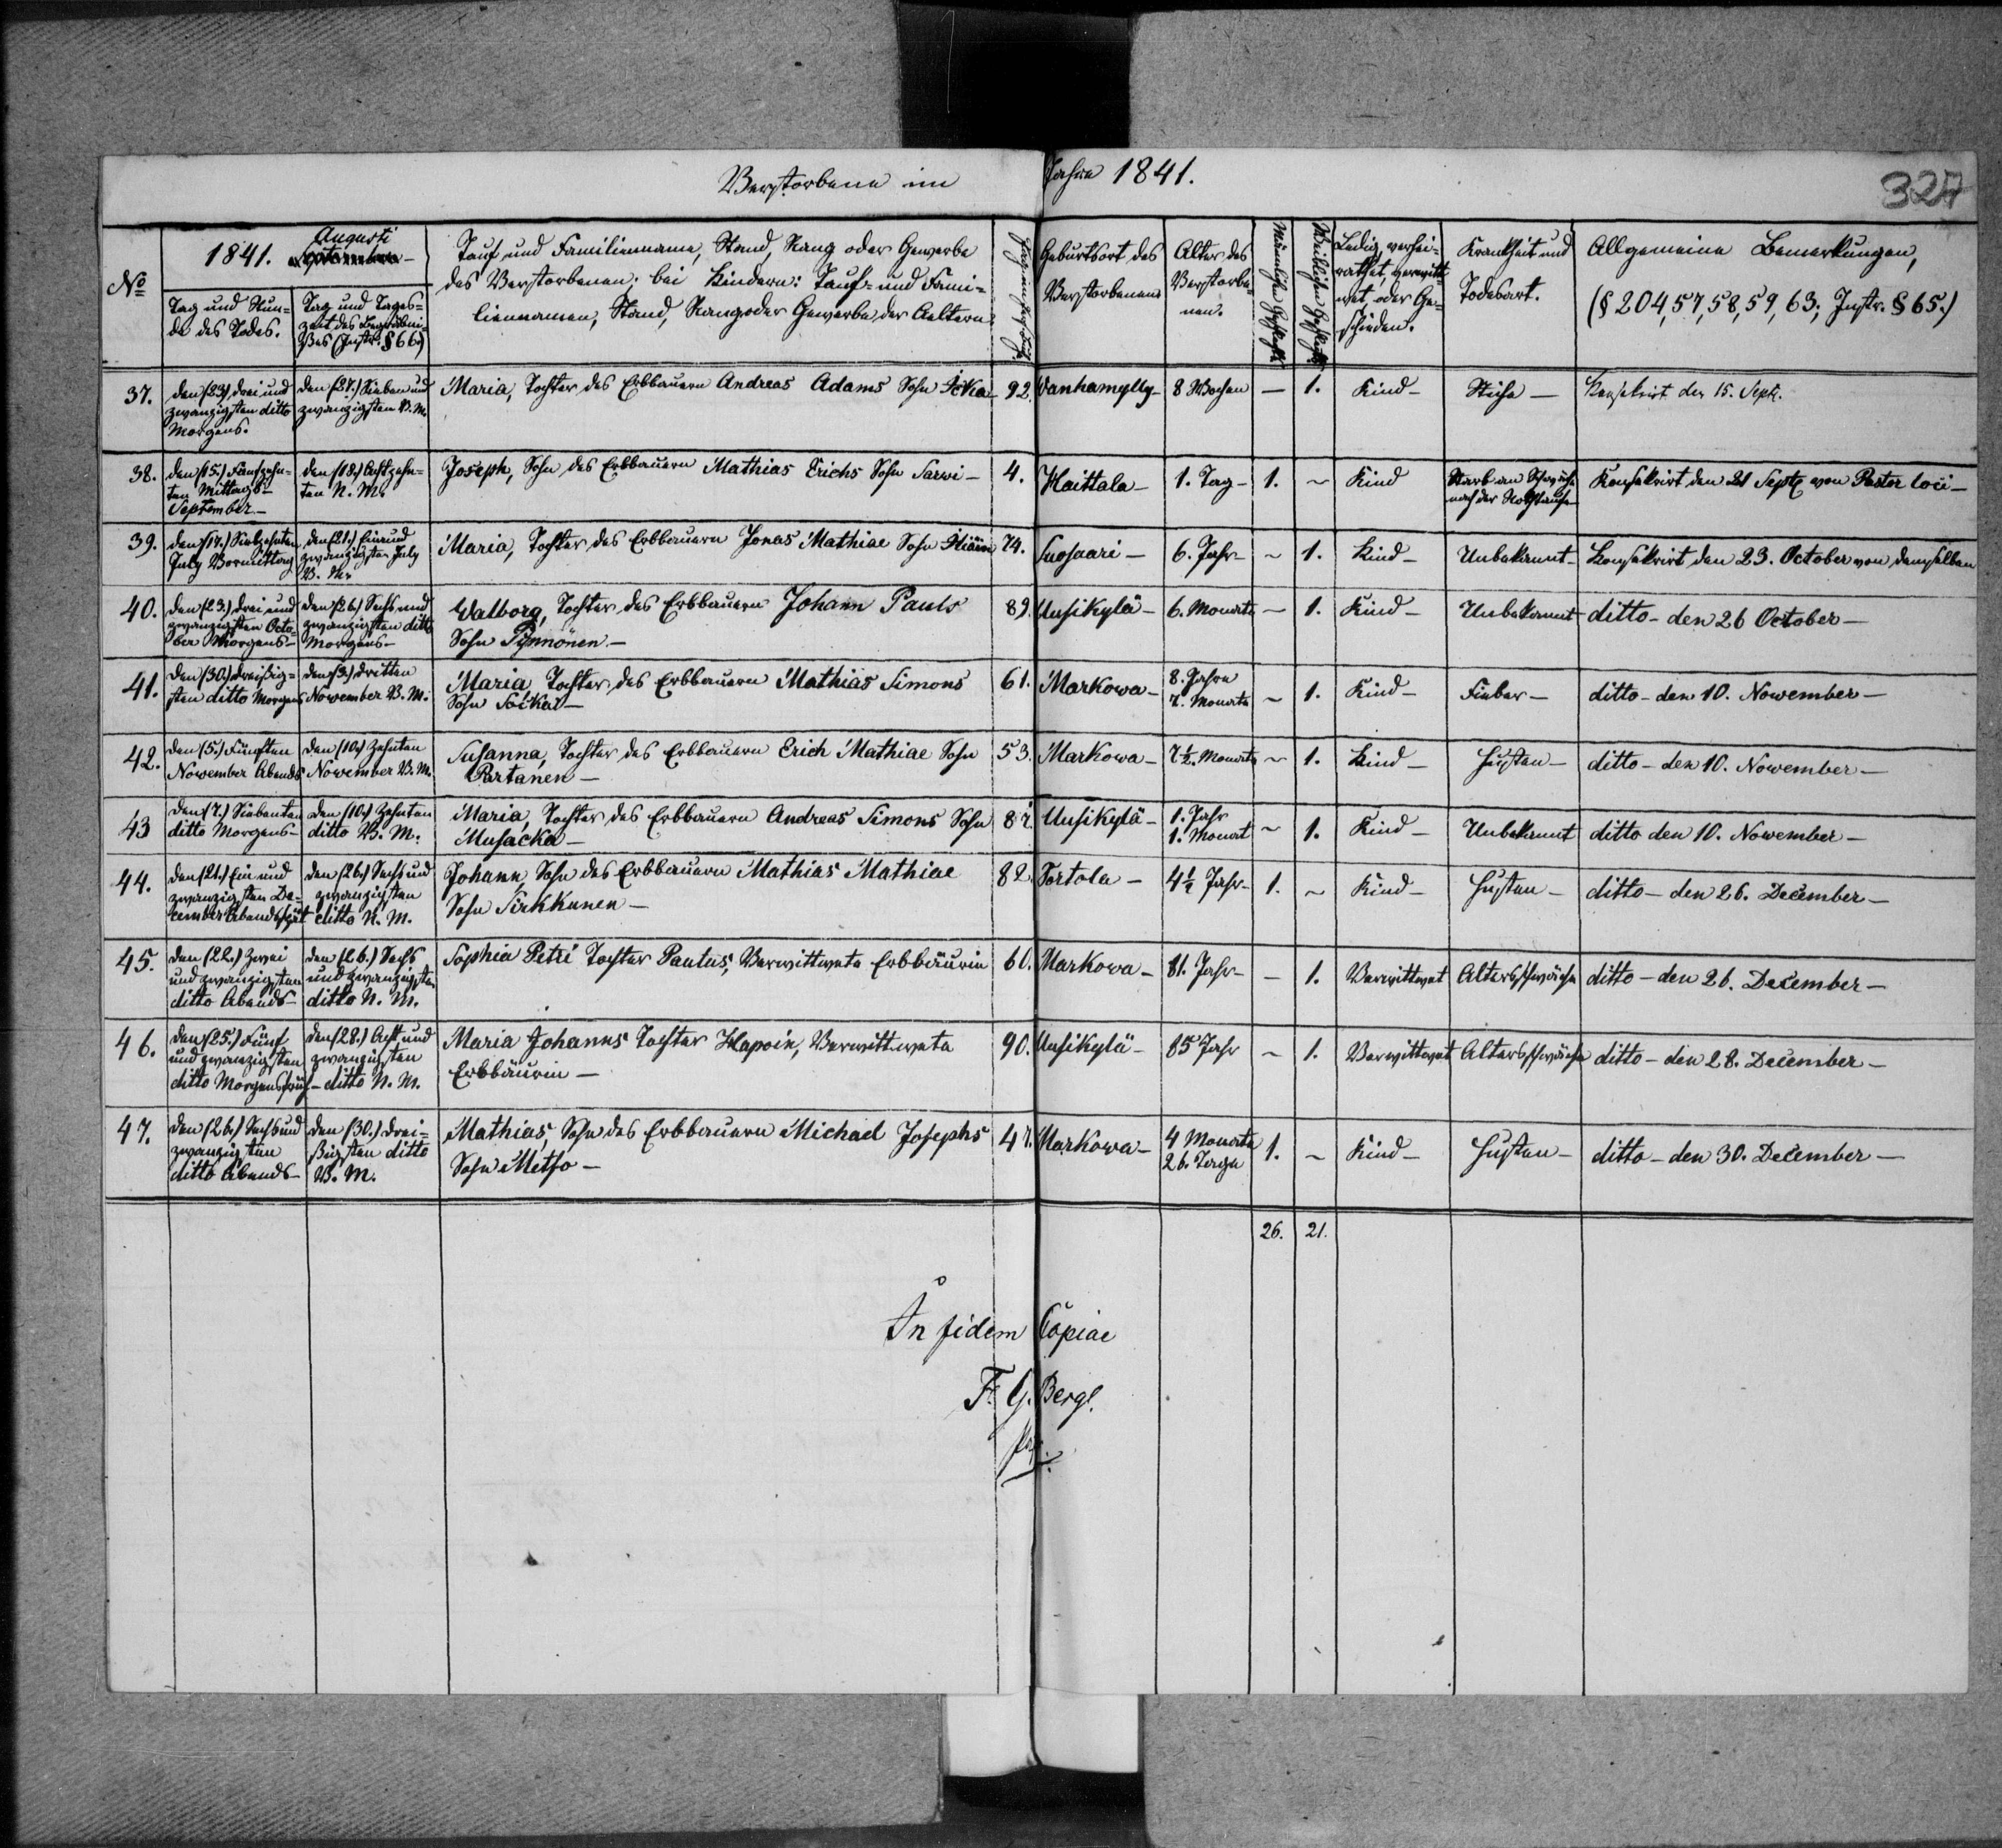 Verstorbene im Jahre 1841.
327
No
1841.
Augusti
Tag und Stun-
de des Todes.
Tag und Tages-
zeit des Begräbni-
ßes (Instr. § 66.)
Tauf und Familienname, Stand, Rang oder Gewerbe
des Verstorbenen; bei Kindern: Tauf- und Fami-
liennamen, Stand, Rang oder Gewerbe der Aeltern.
Geburtsort des
Verstorbenen
Alter des
Verstorbe-
nen.
Männlichen Geschlechts
Weiblichen Geschlechts
Ledig, verhei-
rathet, verwitt-
wet oder Ge-
schieden.
Krankheit und
Todesart.
Allgemeine Bemerkungen,
(§ 204, 57, 58, 59, 63; Instr. § 65.)
37. den (23) drei und
zwanzigsten ditto
Morgens.
den (27.) Sieben und
zwanzigsten V. M.
Maria, Tochter des Erbbauern Andreas Adams Sohn 92. Vanhamylly - 8 Wochen - 1. Kind - Stiche - Konsekrirt den 15. Sept.
38. den (15.) Fünfzehn-
ten Mittags -
September -
den (18.) Achtzehn-
ten N. M.
Joseph, Sohn des Erbbauern Mathias Erichs Sohn Sarwi - 4. Haittala - 1. Tag - 1. ~ Kind Starb an Schwäche
nach der Nothtaufe
Konsekrirt den 21 Sept. von Pastor loci -
39. den (17.) Siebzehnten
July Vormittag
den (21.) Ein und
zwanzigsten July
V. M.
Maria, Tochter des Erbbauern Jonas Mathiae Sohn 74. Suosaari - 6. Jahr - ~ 1. Kind - Unbekannt - Konsekrirt den 23. October von demselben
40. den (23.) drei und
zwanzigsten Octo-
ber Morgens -
den (26.) Sechs und
zwanzigsten ditto
Morgens -
Walborg, Tochter des Erbbauern Johann Pauls
Sohn Pynnönen - 89. Uusikylä - 6. Monate - 1. Kind - Unbekannt ditto - den 26 October -
41. den (30.) dreißig-
sten ditto Morgens
den (3.) dritten
November V. M.
Maria, Tochter des Erbbauern Mathias Simons
Sohn Soikas - 61. Markowa - 8. Jahre
7. Monate ~ 1. Kind - Fieber - ditto - den 10. November -
42. den (5.) Fünften
November Abends
den (10.) Zehnten
November V. M.
Susanna, Tochter des Erbbauern Erich Mathiae Sohn
Partanen - 53. Markowa - 7½. Monate ~ 1. Kind - Husten - ditto - den 10. November -
43 den (7.) Siebenten
ditto Morgens -
den (10.) Zehnten
ditto V. M.
Maria, Tochter des Erbbauern Andreas Simons Sohn
Musacka - 87. Uusikylä - 1. Jahr
1. Monat ~ 1. Kind - Unbekannt ditto den 10. November -
44. den (21.) Ein und
zwanzigsten De-
cember Abendspät
den (26.) Sechs und
zwanzigsten
ditto N. M.
Johann, Sohn des Erbbauern Mathias Mathiae
Sohn Sirkkunen - 82. Tortola - 4½ Jahr - 1. ~ Kind - Husten - ditto - den 26. December -
45. den (22.) Zwei
und zwanzigsten
ditto Abends -
den (26.) Sechs
und zwanzigsten
ditto N. M.
Sophia Petri Tochter Pautus, Verwittwete Erbbäurin 60. Markowa - 81. Jahr - - 1. Verwittwet Altersschwäche ditto - den 26. December -
46. den (25.) Fünf
und zwanzigsten
ditto Morgensfrüh -
den (28.) Acht und
zwanzigsten
ditto N. M.
Maria Johanns Tochter Hapoin, Verwittwete
Erbbäurin - 90. Uusikylä - 85 Jahr ~ 1. Verwittwet Altersschwäche ditto - den 28. December -
47. den (26.) Sechs und
zwanzigsten
ditto Abends -
den (30.) drei-
ßigsten ditto
V. M.
Mathias, Sohn des Erbbauern Michael Josephs
Sohn Metso - 47. Markowa - 4 Monate
26. Tage 1. ~ Kind - Husten - ditto - den 30. December -
26. 21.
In fidem Copiae
F. G. Bergl.